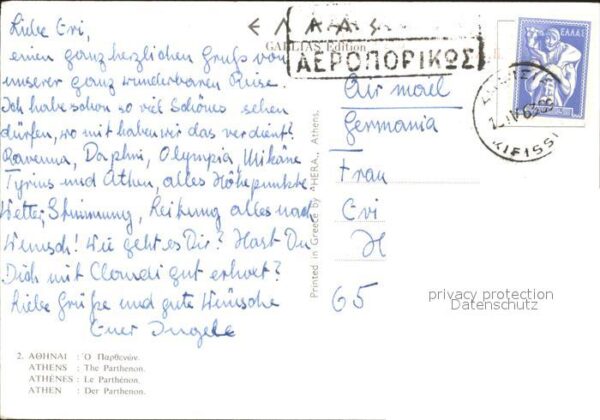 ΕΛΛΑΣ
GALLIAS Edition
ΑΕΡΟΠΟΡΙΚΩΣ
ΕΛΛΑΣ
KIFISSI
Liebe Evi,
einen ganz herzlichen Gruß von
unserer ganz wunderbaren Reise.
Ich habe schon so viel Schönes sehen
dürfen, wo mit haben wir das verdient?
Ravenna, Daphni, Olympia, Mikäne
Tyrius und Athen, alles Höhepunkte
Wetter, Stimmung, Leitung alles nach
Wunsch! Wie geht es Dir? Hast Du
Dich mit Claudi gut erholt?
Liebe Grüße und gute Wünsche
Euer Ingele
Air mael
Germania
Frau
Evi
H
65
Printed in Greece by "HERA,, Athens.
privacy protection
Datenschutz
2. ΑΘΗΝΑΙ : Ὁ Παρθενών.
ATHENS : The Parthenon.
ATHÈNES : Le Parthénon.
ATHEN : Der Parthenon.